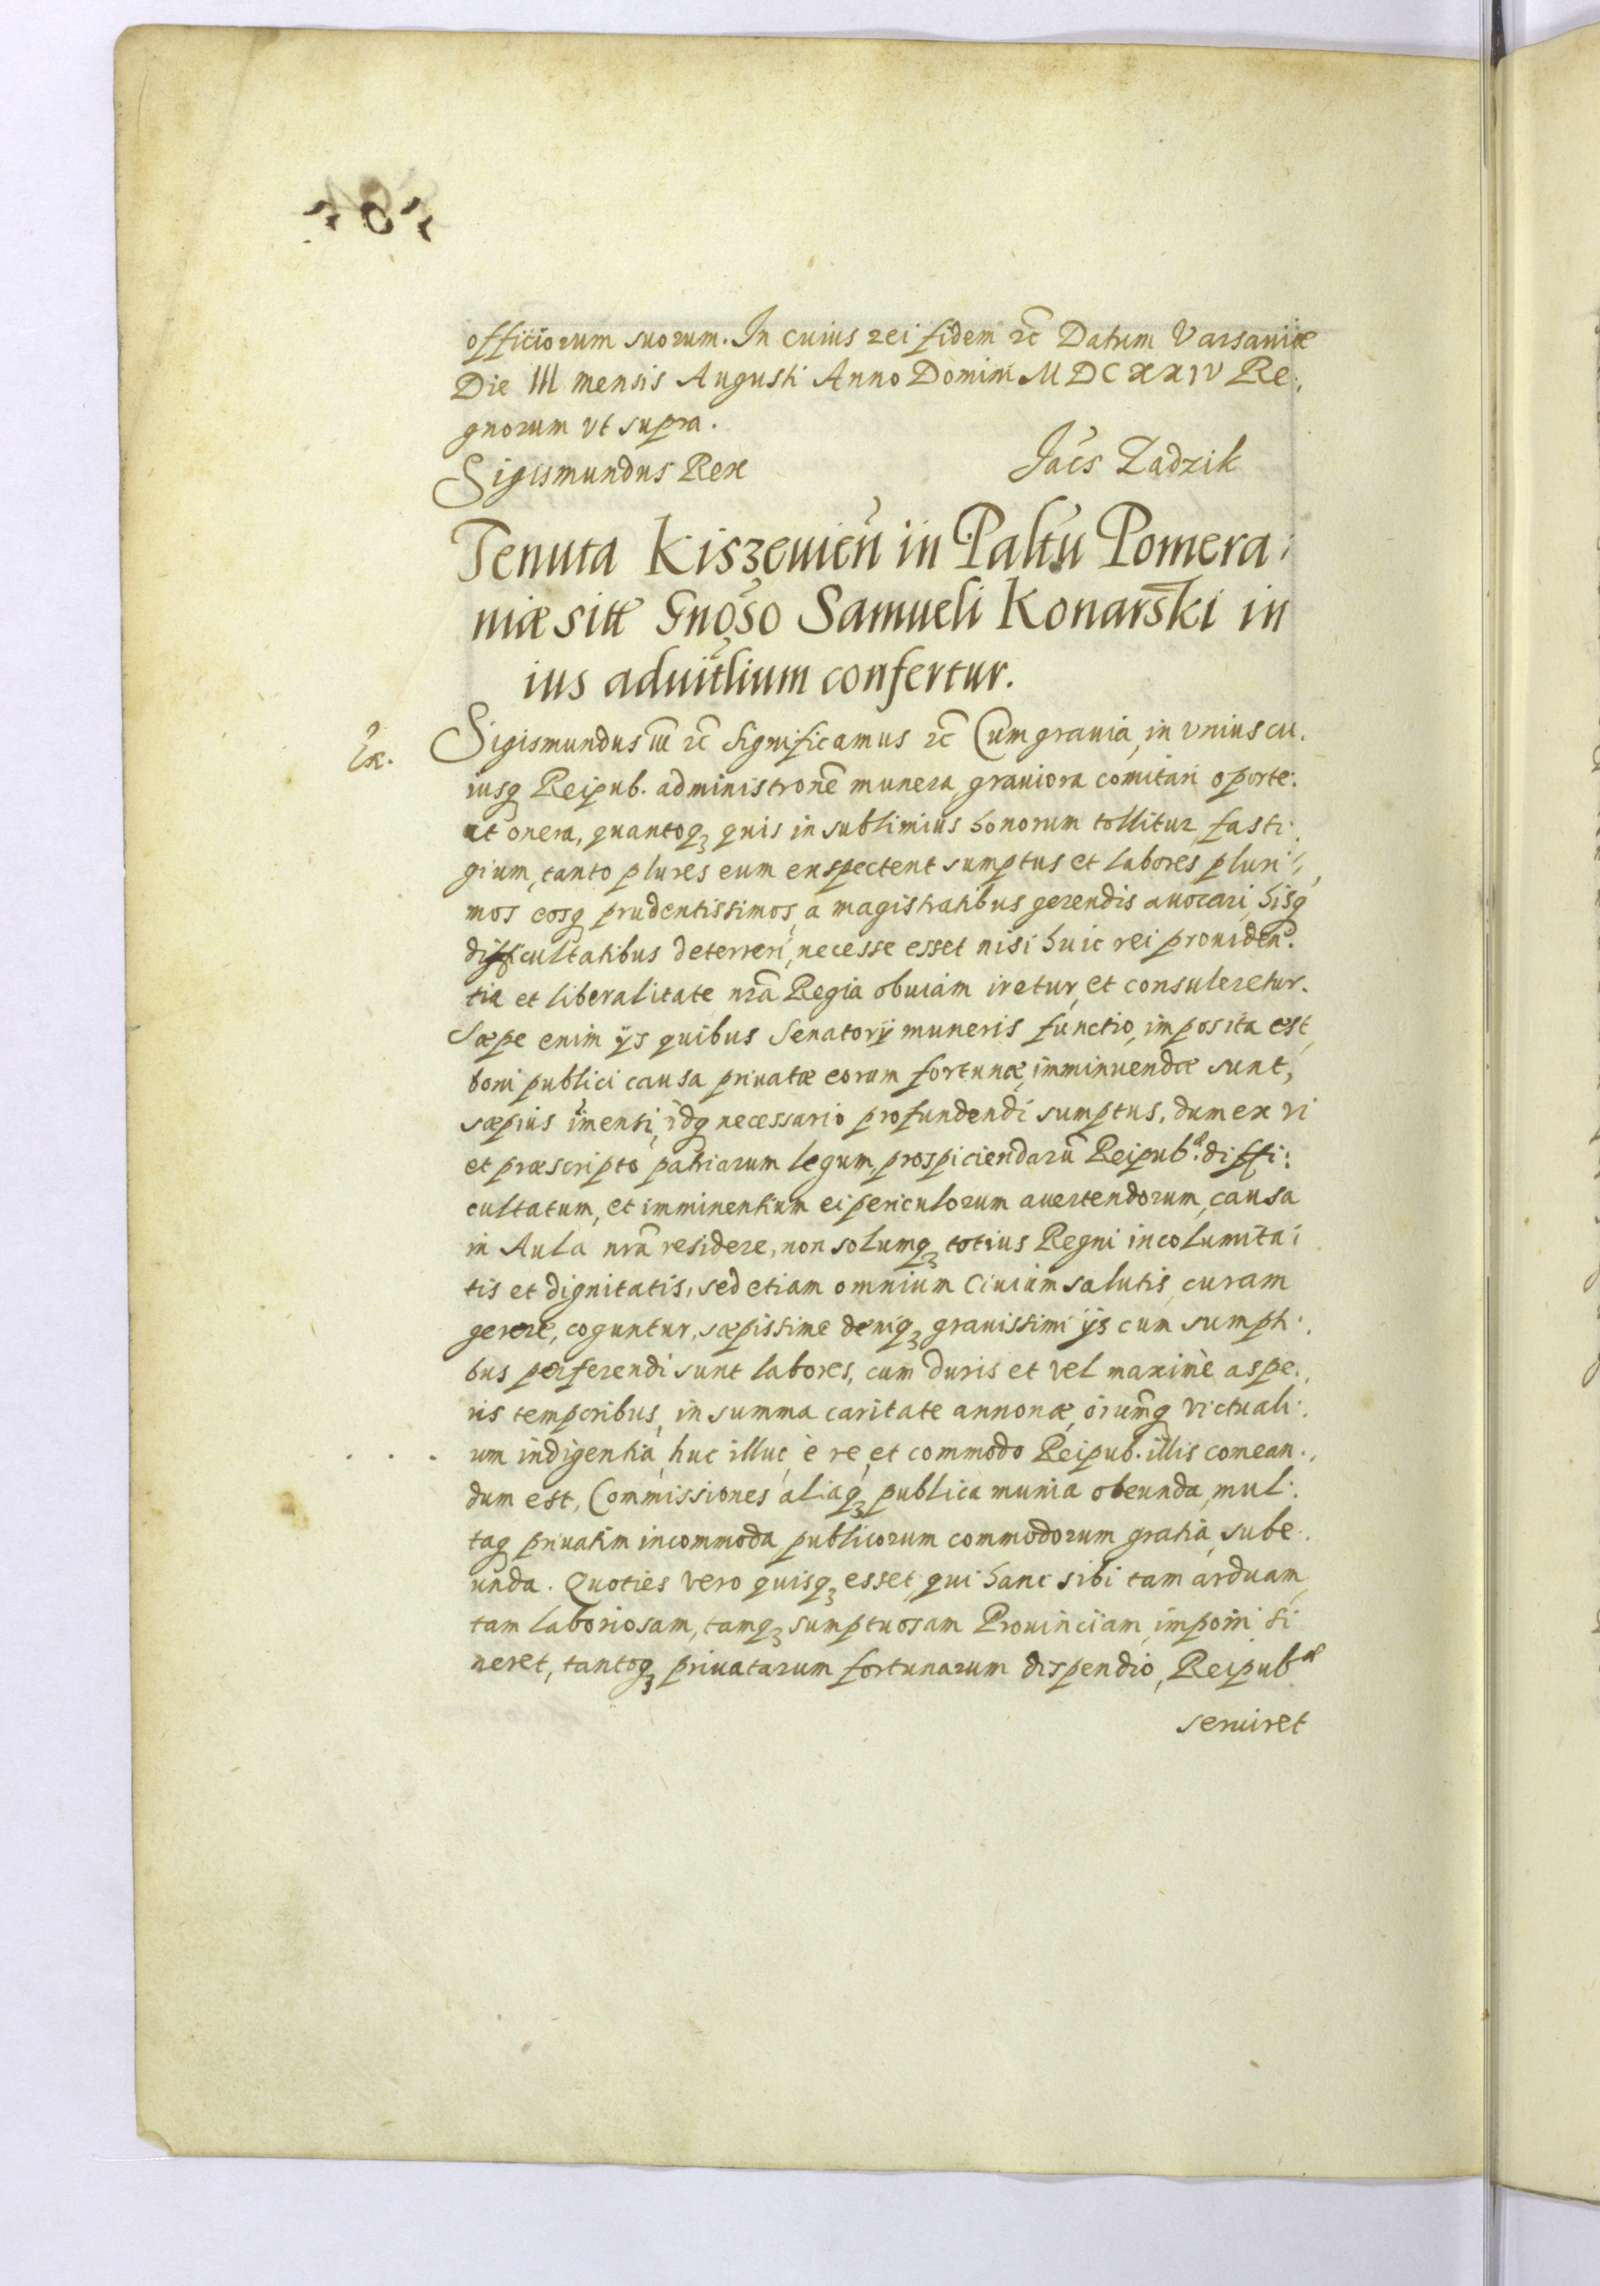 officiorum suorum. In cuius rei fidem ꝛc̃ Datum Varsauiæ
Die III mensis Augusti Anno Domini MDCXXIV Re:
gnorum vt supra.
Sigismundus Rex Jac̃s Zadzik
Tenuta Kiszeuien̄ in Palt̃u Pomera:
niæ sitæ Gnoso Samueli Konarski in
ius aduitlium confertur.
Sigismundus III ꝛc̃ Significamus ꝛc̃ Cum grauia, in vnius cu:
iusq Reipub. administronẽ munera, grauiora comitari oporte:
at onera, quantoq₃ quis in sublimius honorum tollitur, fasti:
gium, tanto plures eum exspectent sumptus et labores pluri:
mos eosq prudentissimos, a magistratibus gerendis auocari, hisq
difficultatibus deterreri, necesse esset nisi huic rei prouiden:
tia et liberalitate nrã Regia obuiam iretur, et consuleretur.
Sæpe enim ijs quibus Senatorij muneris functio, imposita est,
boni publici causa priuatæ eorum fortunæ, imminuendæ sunt,
sæpius im̃ensi, idq necessario profundendi sumptus, dum ex vi
et præscripto patriarum legum, prospiciendarũ Reipub.æ diffi:
cultatum, et imminentium ei periculorum auertendorum, causa
in Aula nrã residere, non solumq₃ totius Regni incolumita:
tis et dignitatis, sed etiam omnium Ciuium salutis, curam
gerere, coguntur, sæpissime deniq₃ grauissimi ijs cum sumpti:
bus perferendi sunt labores, cum duris et vel maximè aspe:
ris temporibus, in summa caritate annonæ, oĩumq victuali:
um indigentia, huc illuc, è re, et commodo Reipub. illis comean:
dum est, Commissiones aliaq₃ publica munia obeunda, mul:
taq priuatim incommoda publicorum commodorum gratia, sube:
unda. Quoties vero quisq₃ esset, qui hanc sibi tam arduam,
tam laboriosam, tamq₃ sumptuosam Prouinciam, imponi si
neret, tantoq₃ priuatarum fortunarum dispendio, Reipub.æ
seruiret